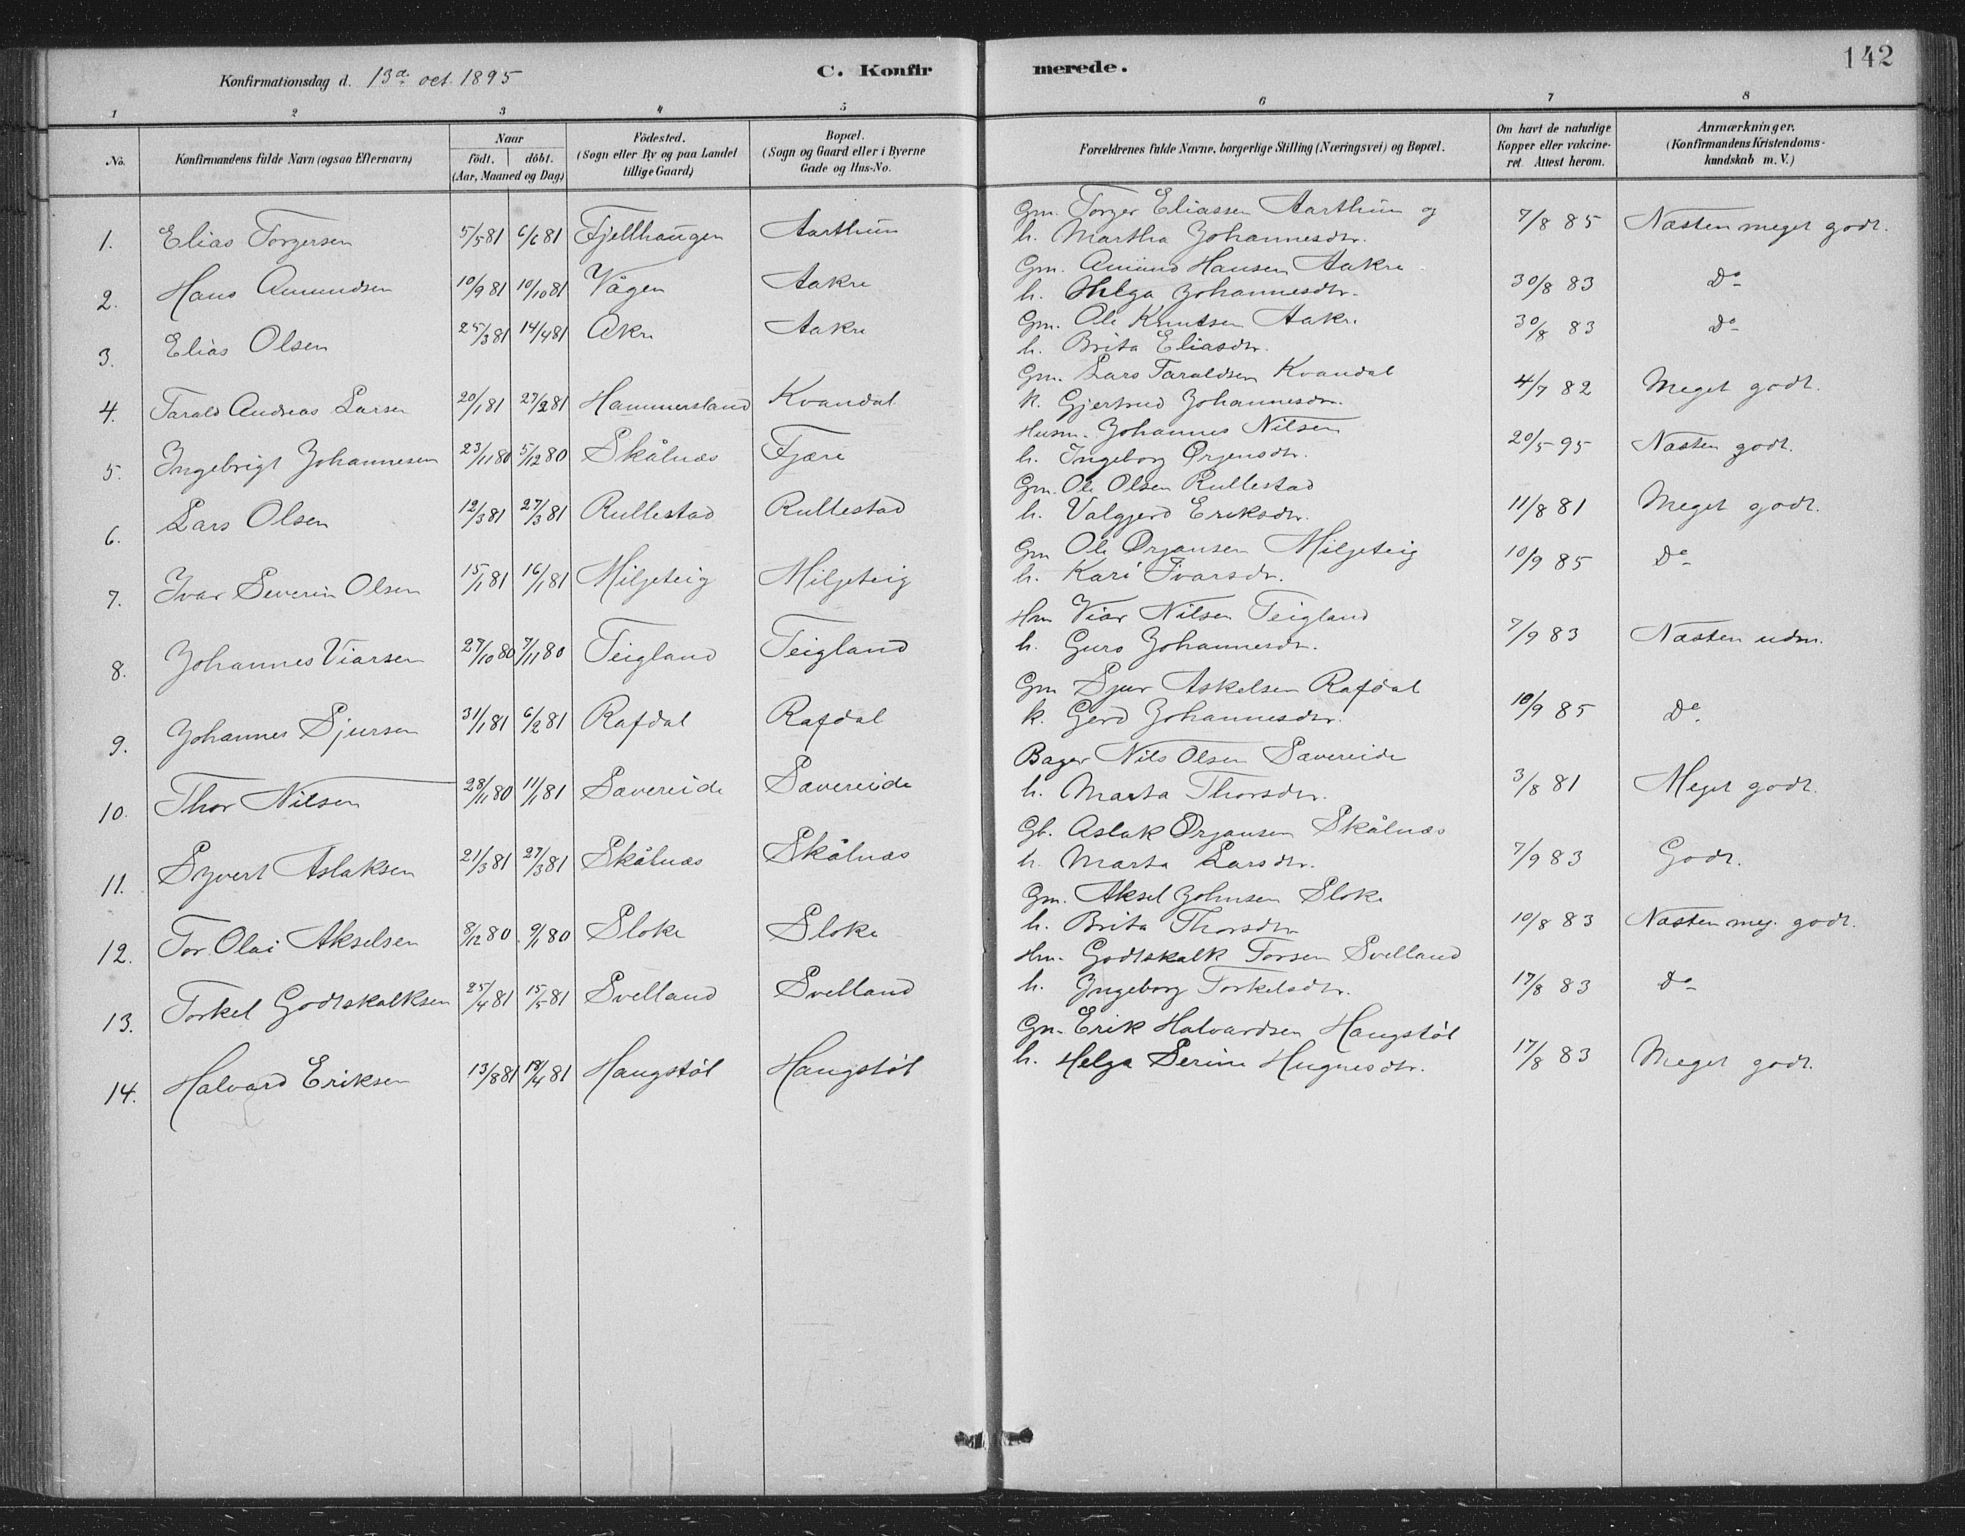 142
Konfirmationsdag d. 13de oct. 1895 C. Konfirmerede.
1 2 3 4 5 6 7 8
No. Konfirmandens fulde Navn (ogsaa Efternavn) Naar födt. döbt. (Aar, Maaned og Dag) Födested. (Sogn eller By og paa Landet tillige Gaard) Bopæl. (Sogn og Gaard eller i Byerne Gade og Hus-No. Forældrenes fulde Navne, borgerlige Stilling (Næringsvei) og Bopæl. Om havt de naturlige Kopper eller vakcineret. Attest herom. Anmærkninger. (Konfirmandens Kristendomskundskab m. V.)
1. Elias Torgersen 5/5 81 6/6 81 Fjellhaugen Aarthun Gm. Torger Eliassen Aarthun og 7/8 85 Næsten meget godt.
h. Martha Johannesdtr.
2. Hans Amundsen 10/9 81 10/10 81 Vågen Aakre Gm. Amund Hansen Aakre 30/8 83 Do
h. Helga Johannesdtr.
3. Elias Olsen 25/3 81 14/4 81 Akre Aakre Gm. Ole Knutsen Aakre 30/8 83 Do
h. Brita Eliasdtr.
4. Tarald Andreas Larsen 20/1 81 27/2 81 Hammersland Kvandal Gm. Lars Taraldsen Kvandal 4/7 82 Meget godt.
k. Gjertrud Johannesdtr.
5. Ingebrigt Johannesen 23/11 80 5/12 80 Skålnæs Fjære Husm. Johannes Nilsen 20/5 95 Næsten godt.
h. Ingeborg Ørjensdtr.
6. Lars Olsen 12/3 81 27/3 81 Rullestad Rullestad Gm. Ole Olsen Rullestad 11/8 81 Meget godt.
h. Valgjerd Eriksdtr.
7. Ivar Severin Olsen 15/1 81 16/1 81 Miljeteig Miljeteig Gm Ole Ørjansen Miljeteig 10/9 85 Do
h. Kari Ivarsdr.
8. Johannes Viarsen 27/10 80 7/11 80 Teigland Teigland Hm Viar Nilsen Teigland 7/9 83 Næsten udm.
h. Guro Johannesdr.
9. Johannes Sjursen 31/1 81 6/2 81 Rafdal Rafdal Gm Sjur Askelsen Rafdal 10/9 85 Do
k. Gerd Johannesdtr.
10. Thor Nilsen 28/11 80 1/1 81 Sævereide Sævereide Bager Nils Olsen Sævereide 3/8 81 Meget godt.
h. Marta Thorsdtr.
11. Syvert Aslaksen 21/3 81 27/3 81 Skålnæs Skålnæs Gb. Aslak Ørjansen Skålnæs 7/9 83 Godt.
h. Marta Larsdtr.
12. Tor Olai Akselsen 8/12 80 9/1 80 Sloke Sloke Gm. Aksel Johnsen Sloke 10/8 83 Næsten meg. godt.
h. Brita Thorsdtr
13. Torkel Godtskalksen 25/4 81 15/5 81 Svelland Svelland Hm. Godtskalk Torsen Svelland 17/8 83 Do
h. Ingeborg Torkelsdtr.
14. Halvard Eriksen 13/8 81 /4 81 Haugstøl Haugstøl Gm. Erik Halvardsen Haugstøl 17/8 83 Meget godt.
h. Helga Serine Hugnesdtr.